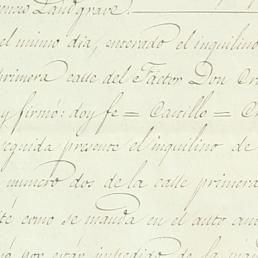 Landgrave.
el mismo dia, enterado el inquilino
primera calle del Factor Don
y firmó: doy fe = Carrillo =
seguida presente el inquilino de
numero dos de la calle primera
como se manda en el auto
por estár impedido de la